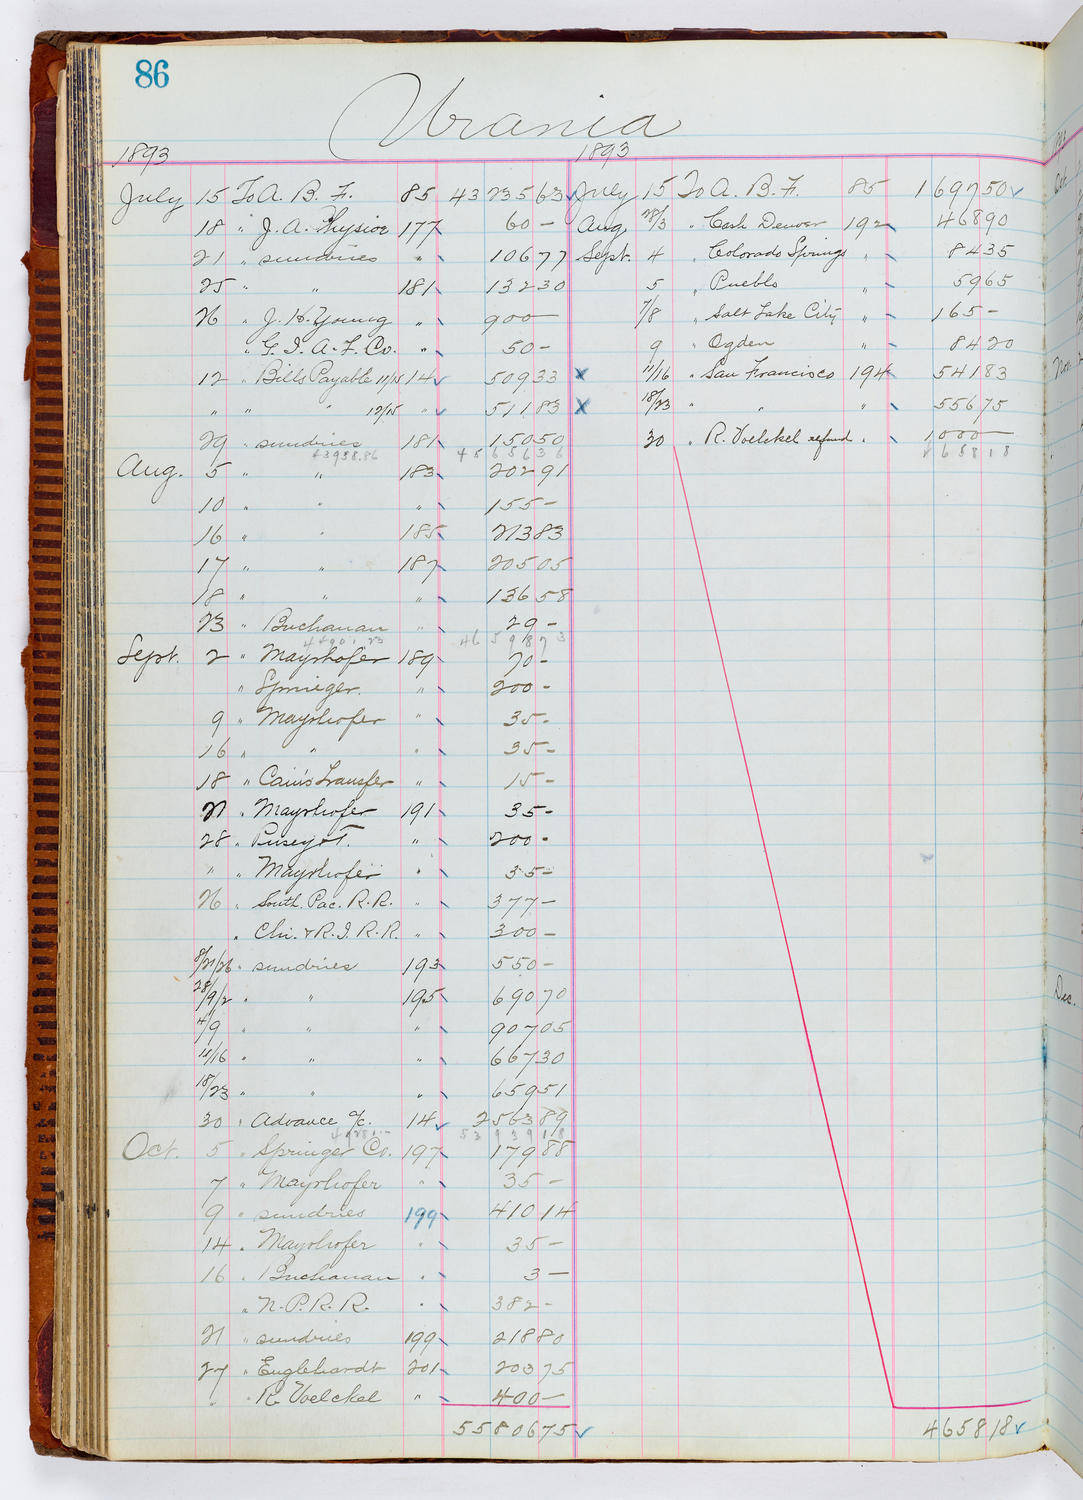 86
Urania
1893
July 15 To A. B. F. 85 43 735 63
18 " J. A. Physioc 177 60 –
21 " sundries " 106 77
25 " " 181 132 30
26 " J. H. Young " 900 —
" G. I. A. L. Co. " 50 –
12 " Bills Payable 11/15 14 509 33 x
" " " 12/15 " 511 83 x
29 " sundries 181 150 50
43958.86 45 656 36
Aug. 5 " " 183 202 91
10 " " " 155 –
16 " " 185 273 83
17 " " 187 205 05
18 " " " 136 58
23 " Buchanan " 29 –
46 598 73
Sept. 2 " Mayrhofer 189 70 –
" Springer " 200 –
9 " Mayrhofer " 35 –
16 " " " 35 –
18 " Cain's Transfer " 15 –
21 " Mayrhofer 191 35 –
28 " Pusey & T. " 200 –
" " Mayrhofer " 35 –
26 " South. Pac. R. R. " 377 –
" Chi. & R. I. R. R. " 300 –
8/21/26 " sundries 193 550 –
28/9/2 " " 195 690 70
4/9 " " " 907 05
11/16 " " " 667 30
18/23 " " " 659 51
30 " Advance a/c. 14 2 563 89
53 939 18
Oct. 5 " Springer Co. 197 179 88
7 " Mayrhofer " 35 –
9 " sundries 199 410 14
14 " Mayrhofer " 35 –
16 " Buchanan " 3 —
" N. P. R. R. " 382 –
21 " sundries 199 218 80
27 " Englehardt 201 203 75
" " R. Voelckel " 400 —
55 806 75
1893
July 15 To A. B. F. 85 1 697 50
Aug. 28/3 " Cash Denver 192 468 90
Sept. 4 " Colorado Springs " 84 35
5 " Pueblo " 59 65
7/8 " Salt Lake City " 165 –
9 " Ogden " 84 20
11/16 " San Francisco 194 541 83
18/23 " " " 556 75
30 " R. Voelckel refund " 1 000 —
4 658 18
4 658 18
Oct.
Nov.
Dec.